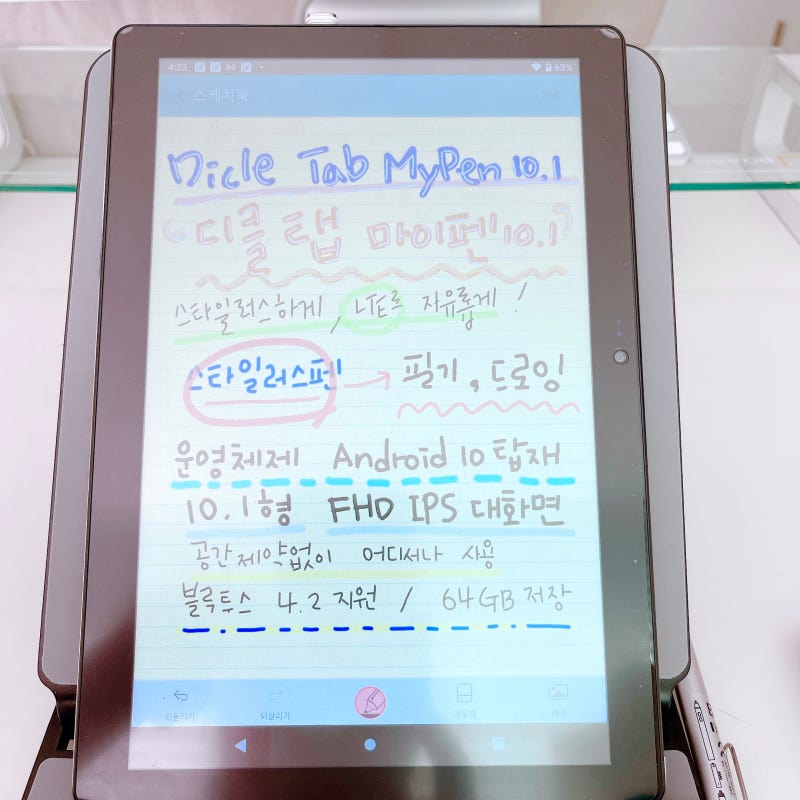 4:23 63%
스케치북 완료
Dicle Tab MyPen 10.1
"디클 탭 마이펜 10.1"
스타일러스하게, LTE로 자유롭게!
스타일러스펜 → 필기, 드로잉
운영체제 Android 10 탑재
10.1형 FHD IPS 대화면
공간제약없이 어디서나 사용
블루투스 4.2 지원 / 64GB 저장
되돌리기 되살리기 지우개 배경